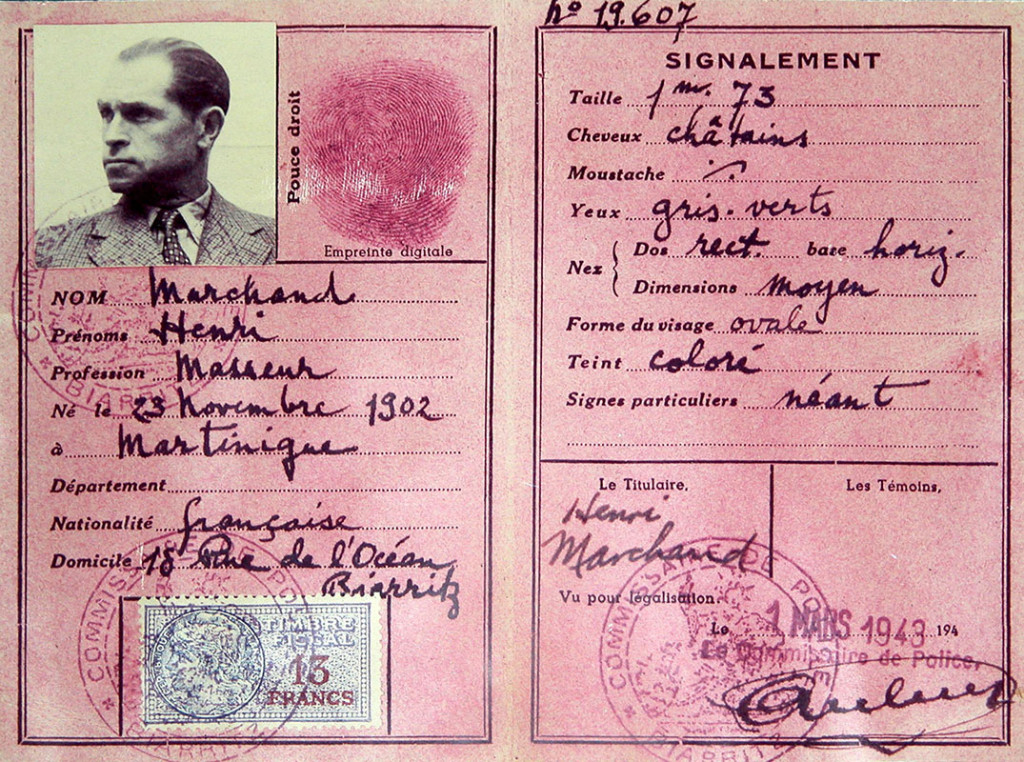 No 19.607
Pouce droit
Empreinte digitale
NOM Marchand
Prénoms Henri
Profession Masseur
Né le 23 Novembre 1902
à Martinique
Département
Nationalité française
Domicile 18 Rue de l'Océan
Biarritz
TIMBRE
FISCAL
13
FRANCS
COMMISSARIAT DE POLICE
BIARRITZ
SIGNALEMENT
Taille 1 m. 73
Cheveux châtains
Moustache
Yeux gris. verts
Nez
Dos rect. base horiz.
Dimensions moyen
Forme du visage ovale
Teint coloré
Signes particuliers néant
Le Titulaire, Les Témoins,
Henri
Marchand
Vu pour légalisation.
Le 1 MARS 1943 194
Le Commissaire de Police,
COMMISSARIAT DE POLICE
BIARRITZ